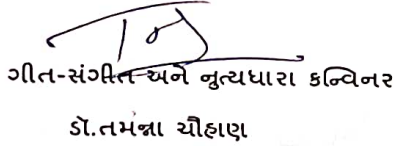 ગીત-સંગીત અને નૃત્યધારા કન્વિનર
ડૉ.તમન્ના ચૌહાણ